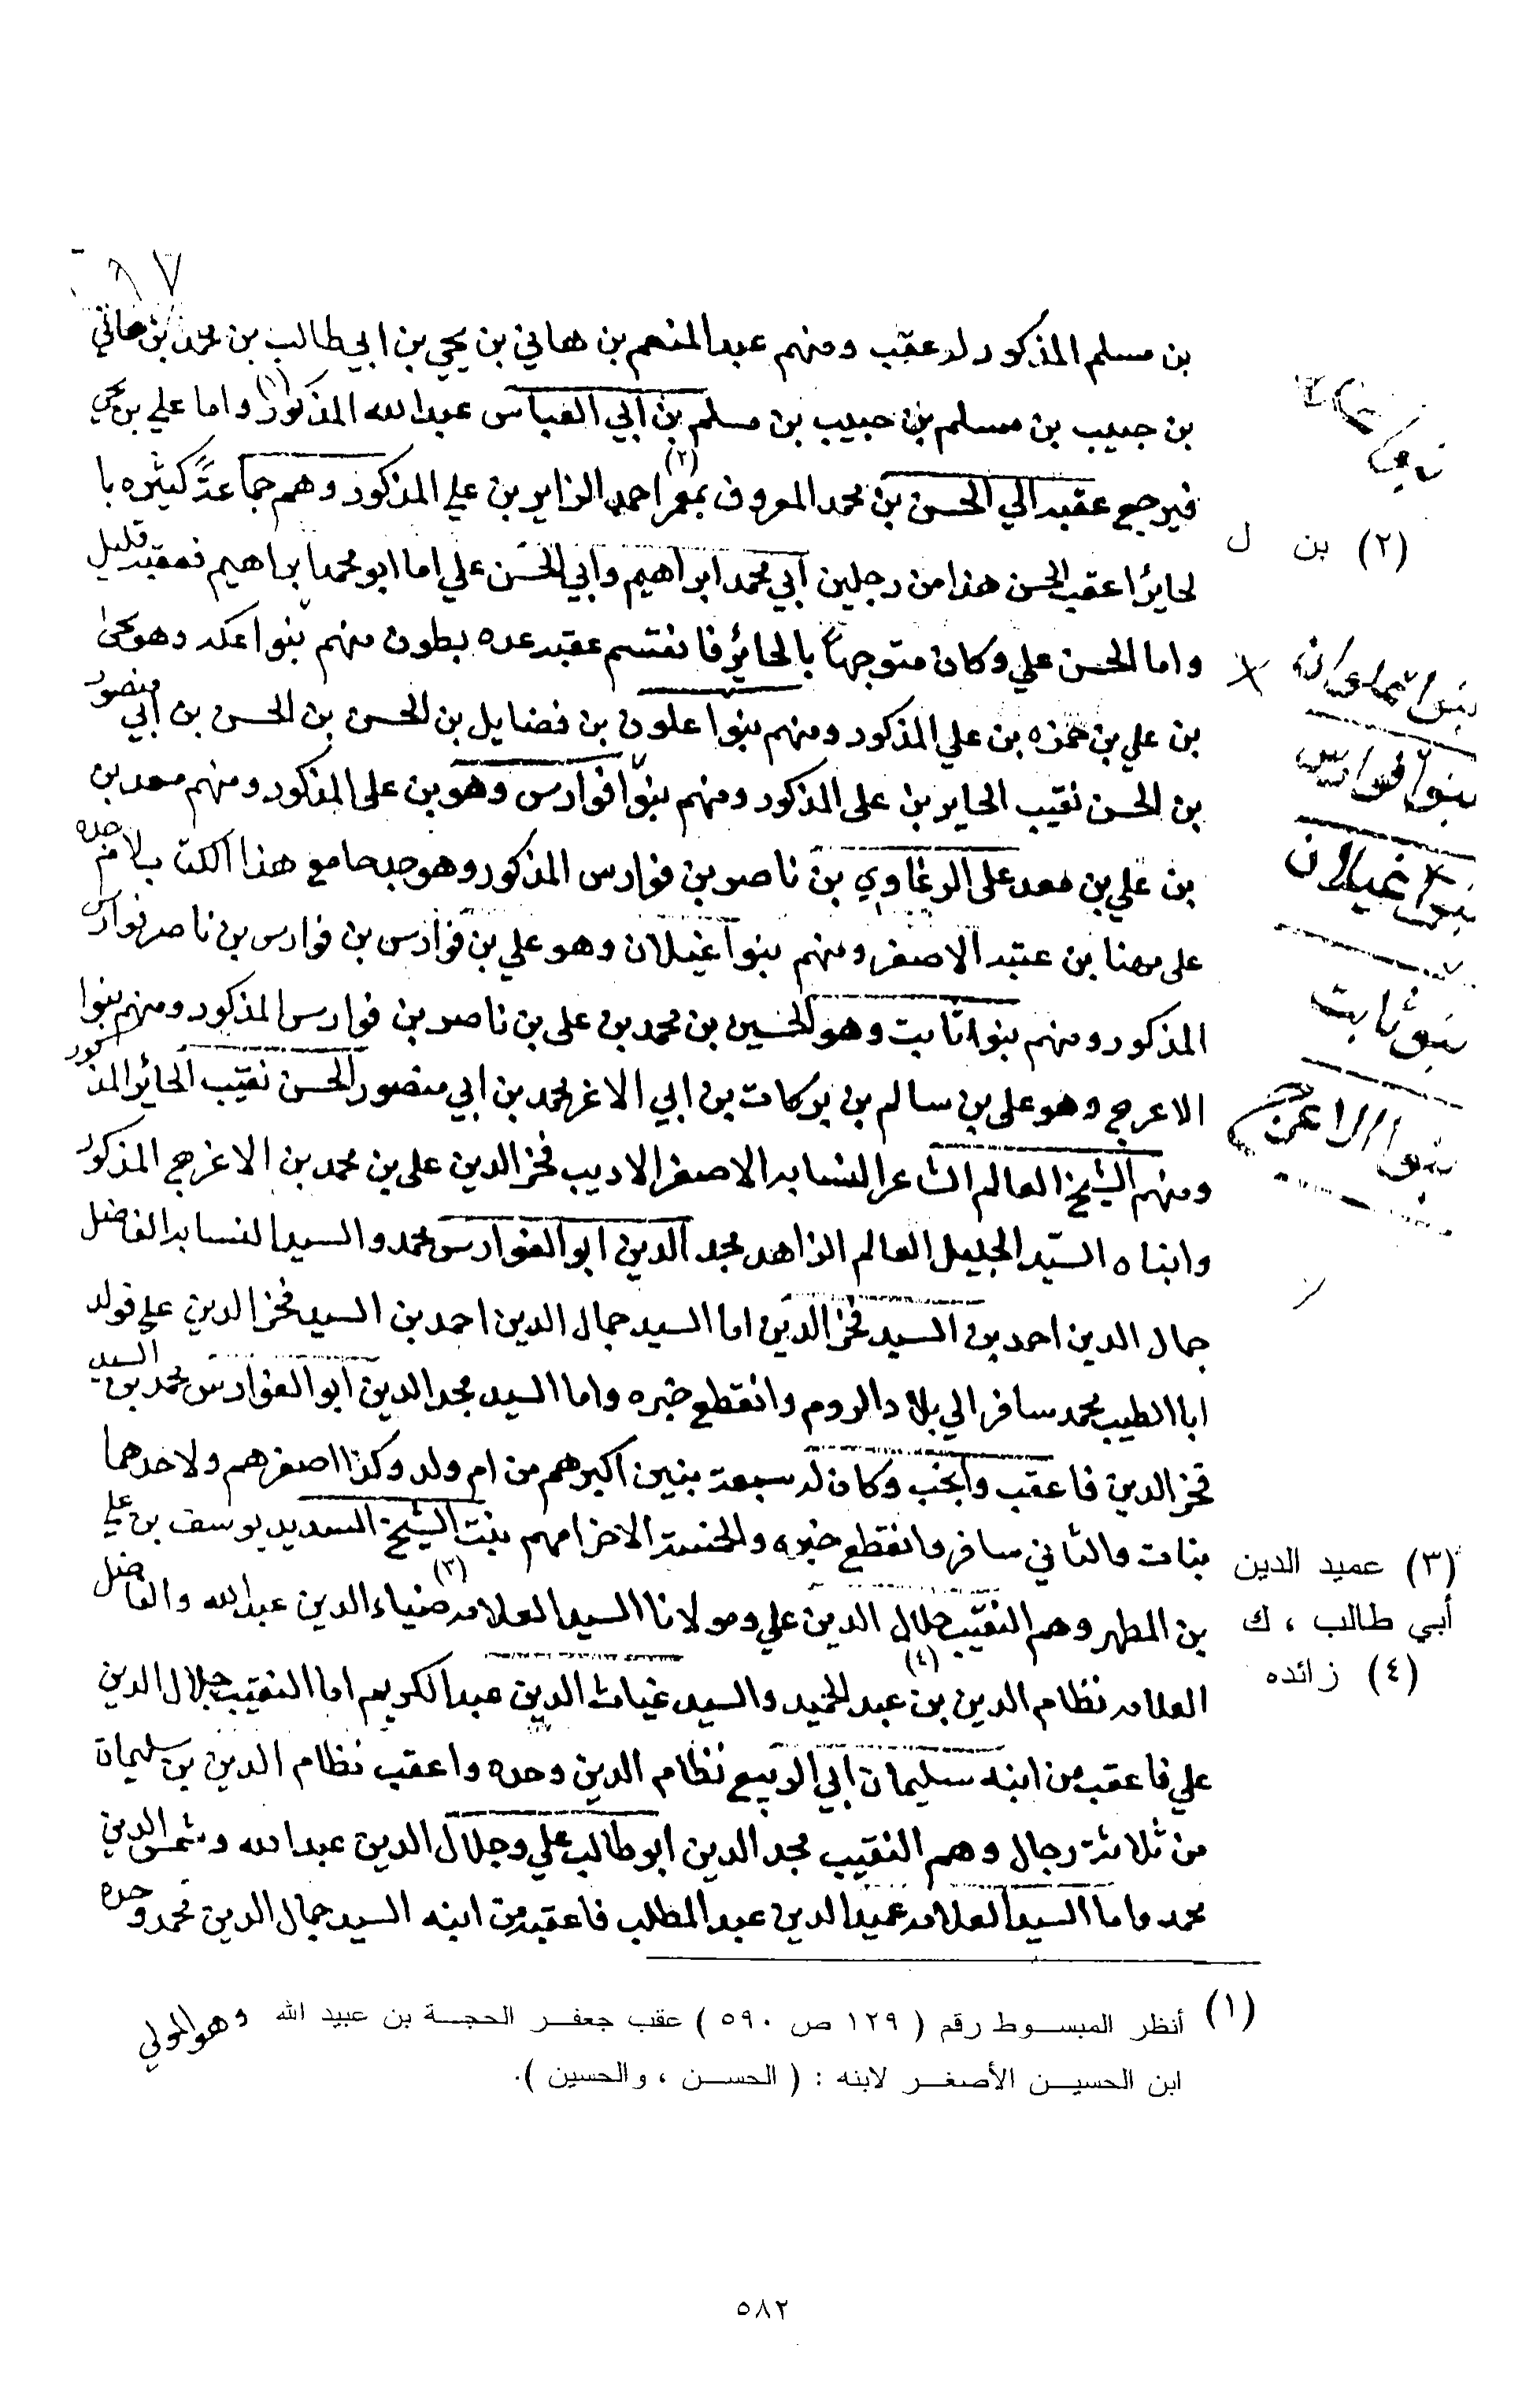 بن مسلم المذكور له عقب ومنهم عبد المنعم بن هاني بن يحي بن ابي طالب بن محمد بن هاني
بن حبيب بن مسلم بن حبيب بن مسلم بن ابي العباس عبد الله المذكور (١) واما علي بن يحي
فيرجع عقبه الي الحسن بن محمد المعروف بمعمر (٢) احمد الزاير بن علي المذكور وهم جماعةً كثيره با
لحاير اعقب الحسن هذا من رجلين ابي محمد ابراهيم وابي الحسن علي اما ابو محمد ابراهيم فعقبه قليل
واما الحسن علي وكان متوجهاً بالحائر فانقسم عقبه عده بطون منهم بنوا عكه وهو يحيى
بن علي بن حمزه بن علي المذكور ومنهم بنوا علون بن فضايل بن الحسن بن الحسن بن ابي منصور
بن الحسن نقيب الحاير بن على المذكور ومنهم بنوا فوارس وهو بن على المذكور ومنهم معد بن
بن علي بن معد على الرغاوي بن ناصر بن فوارس المذكور وهو جد جامع هذا الكت بـ لامه جده
على مهنا بن عتبه الاصغر ومنهم بنوا غيلان وهو علي بن فوارس بن فوارس بن ناصر فوارس
المذكور ومنهم بنوا ثابت وهو الحسين بن محمد بن على بن ناصر بن فوارس المذكور ومنهم بنوا
الاعرج وهو على بن سالم بن بركات بن ابي الاغر محمد بن ابي منصور الحسن نقيب الحائر المذكور
ومنهم الشيخ العالم الشاعر النسابه الاصغر الاديب فخر الدين على بن محمد بن الاعرج المذكور
وابناه السيّد الجليل العالم الزاهد مجد الدين ابو الفوارس محمد والسيد النسابه الفاضل
جمال الدين احمد بن السيد فخر الدين اما السيد جمال الدين احمد بن السيد فخر الدين علي فولد
ابا الطيب محمد سافر الي بلاد الروم وانقطع خبره واما السيد مجد الدين ابو الفوارس محمد بن السيد
فخر الدين فاعقب وانجب وكان له سبعة بنين اكبرهم من ام ولد وكذا اصغرهم ولاحدهما
بنات والثاني سافر وانقطع خبره والخمسة الاخر امهم بنت الشيخ السديد يوسف بن علي
بن المطهر وهم النقيب جلال الدين علي ومولانا السيد العلامه (٣) ضياء الدين عبد الله والفاضل
العلامه نظام الدين بن (٤) عبد الحميد والسيد غياث الدين عبد الكريم اما النقيب جلال الدين
علي فاعقب من ابنه سليمان ابي الربيع نظام الدين وحده واعقب نظام الدين بن سليمان
من ثلاثة رجال وهم النقيب مجد الدين ابو طالب علي وجلال الدين عبد الله وشمس الدين
محمد واما السيد العلامه عميد الدين عبد المطلب فاعقب من ابنه السيد جمال الدين محمد وحده
وهو المولي
(٢) بن ل
بنوا علوان
بنوا فوارس
بنوا غيلان
بنو ثابت
بنوا الاعرج
(٣) عميد الدين
أبي طالب ، ك
(٤) زائده
(١) أنظر المبسوط رقم ( ١٢٩ ص ٥٩٠ ) عقب جعفر الحجة بن عبيد الله
ابن الحسين الأصغر لابنه : ( الحسن ، والحسين ).
٥٨٢